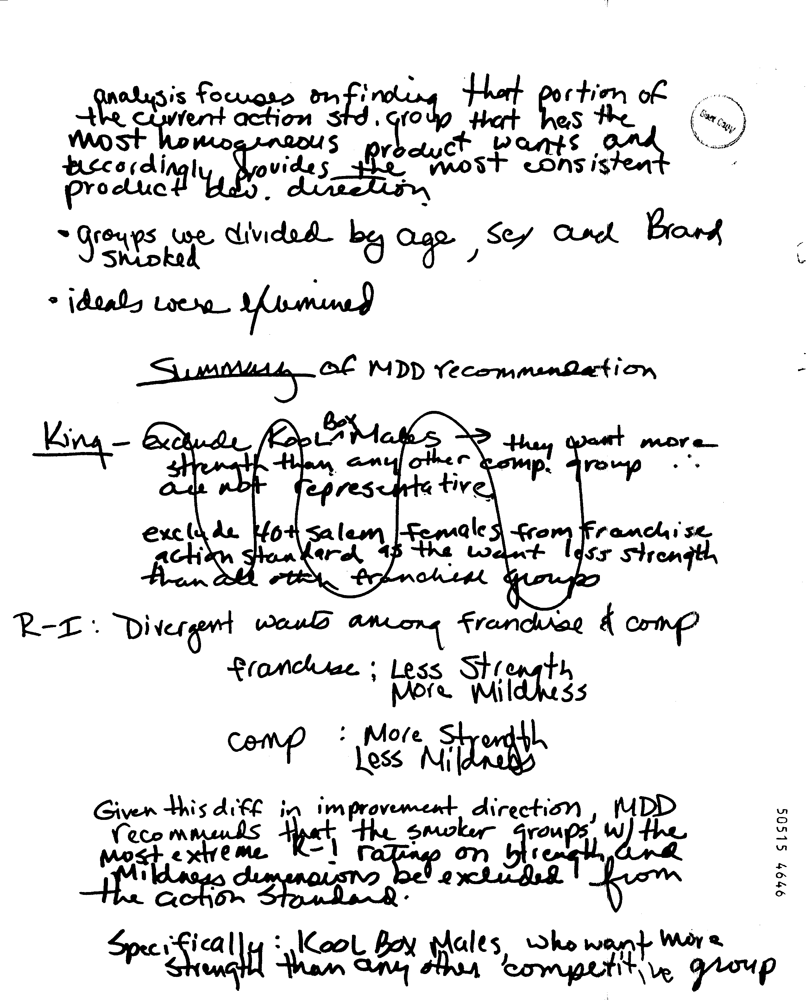 analysis focuses on finding that portion of
the current action std. group that has the
most homogeneous product wants and
accordingly provides the most consistent
product dev. direction
• groups we divided by age, sex and Brand
smoked
• ideals were examined
Summary of MDD recommendation
King - exclude KOOL Box Males → they want more
strength than any other comp. group ∴
are not representative
exclude 40+ Salem females from franchise
action standard as the want less strength
than all other franchise groups
R-I: Divergent wants among franchise & comp
franchise; Less Strength
More Mildness
comp : More Strength
Less Mildness
Given this diff in improvement direction, MDD
recommends that the smoker groups w/ the
most extreme R-I ratings on strength and
Mildness dimensions be excluded from
the action standard.
Specifically: KOOL Box Males, who want more
strength than any other competitive group
50515 4646